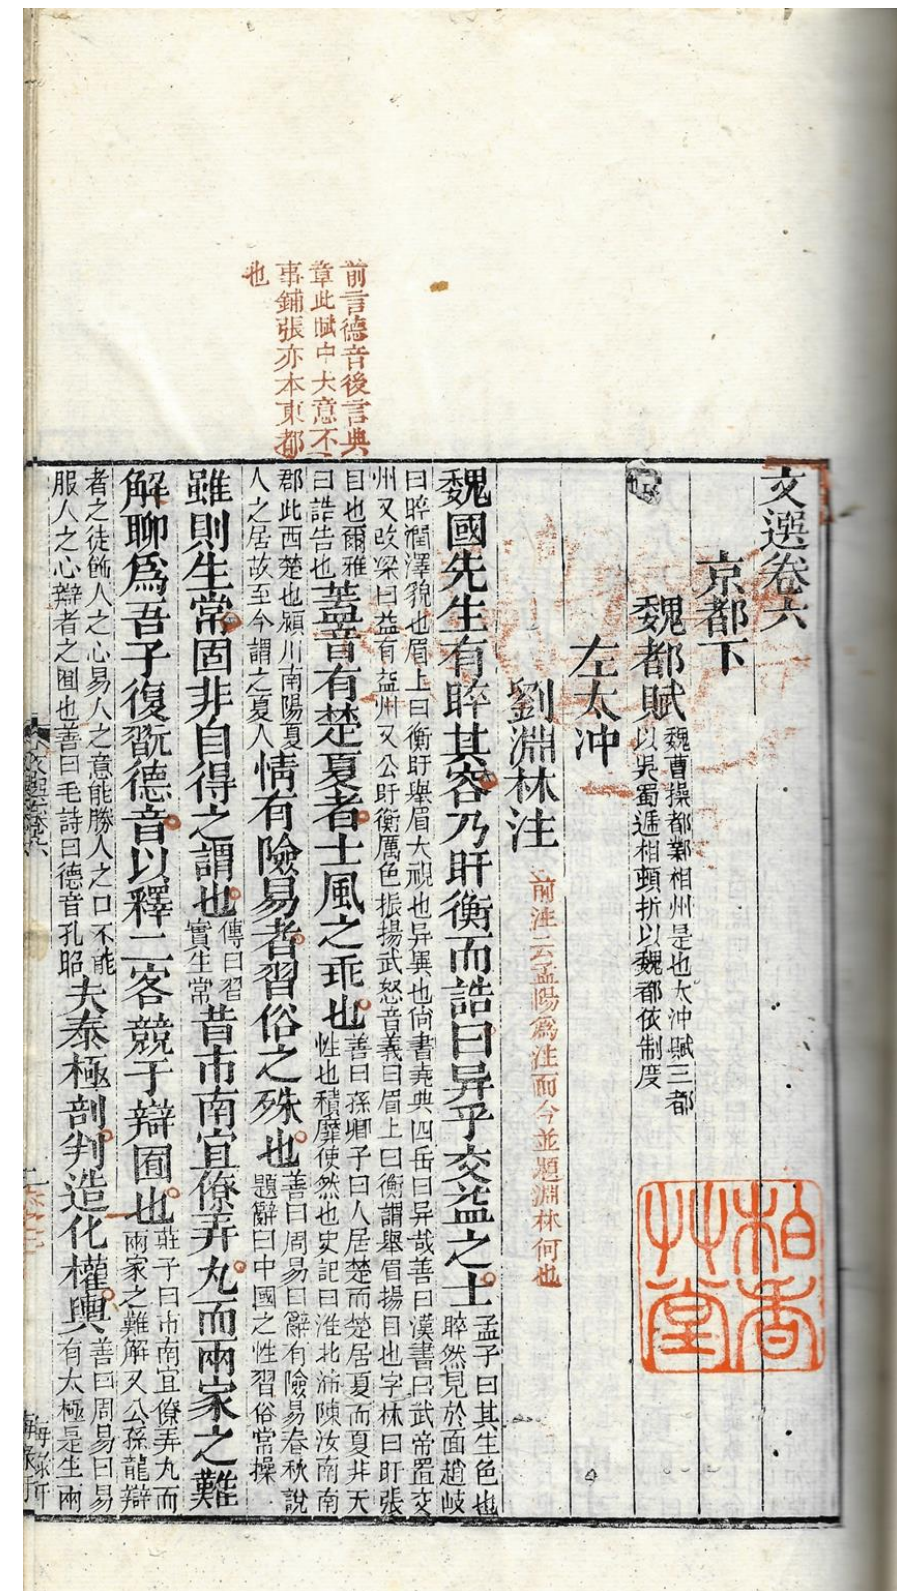 前言德音後言典
章此賦中大意不
事鋪張亦本東都
也
文選卷六
京都下
魏都賦
魏曹操都鄴相州是也太冲賦三都
以吳蜀遞相頓折以魏都依制度
左太冲
劉淵林注
前注云孟陽爲注而今並題淵林何也
魏國先生有睟其容乃盱衡而誥曰异乎交益之士
孟子曰其生色也
睟然見於面趙岐
曰睟潤澤貌也眉上曰衡盱舉眉大視也异異也尙書堯典四岳曰异哉善曰漢書曰武帝置交
州又改梁曰益有益州又公盱衡厲色振揚武怒音義曰眉上曰衡謂舉眉揚目也字林曰盱張
目也爾雅
曰誥告也
蓋音有楚夏者士風之乖也
善曰孫卿子曰人居楚而楚居夏而夏非天
性也積靡使然也史記曰淮北沛陳汝南南
郡此西楚也潁川南陽夏
人之居故至今謂之夏人
情有險易者習俗之殊也
善曰周易曰辭有險易春秋說
題辭曰中國之性習俗常操
雖則生常固非自得之謂也
傳曰習
實生常
昔市南宜僚弄丸而兩家之難
解聊爲吾子復翫德音以釋二客競于辯囿也
莊子曰市南宜僚弄丸而
兩家之難解又公孫龍辯
者之徒飾人之心易人之意能勝人之口不能
服人之心辯者之囿也善曰毛詩曰德音孔昭
夫泰極剖判造化權輿
善曰周易曰易
有太極是生兩
柏香
艸堂